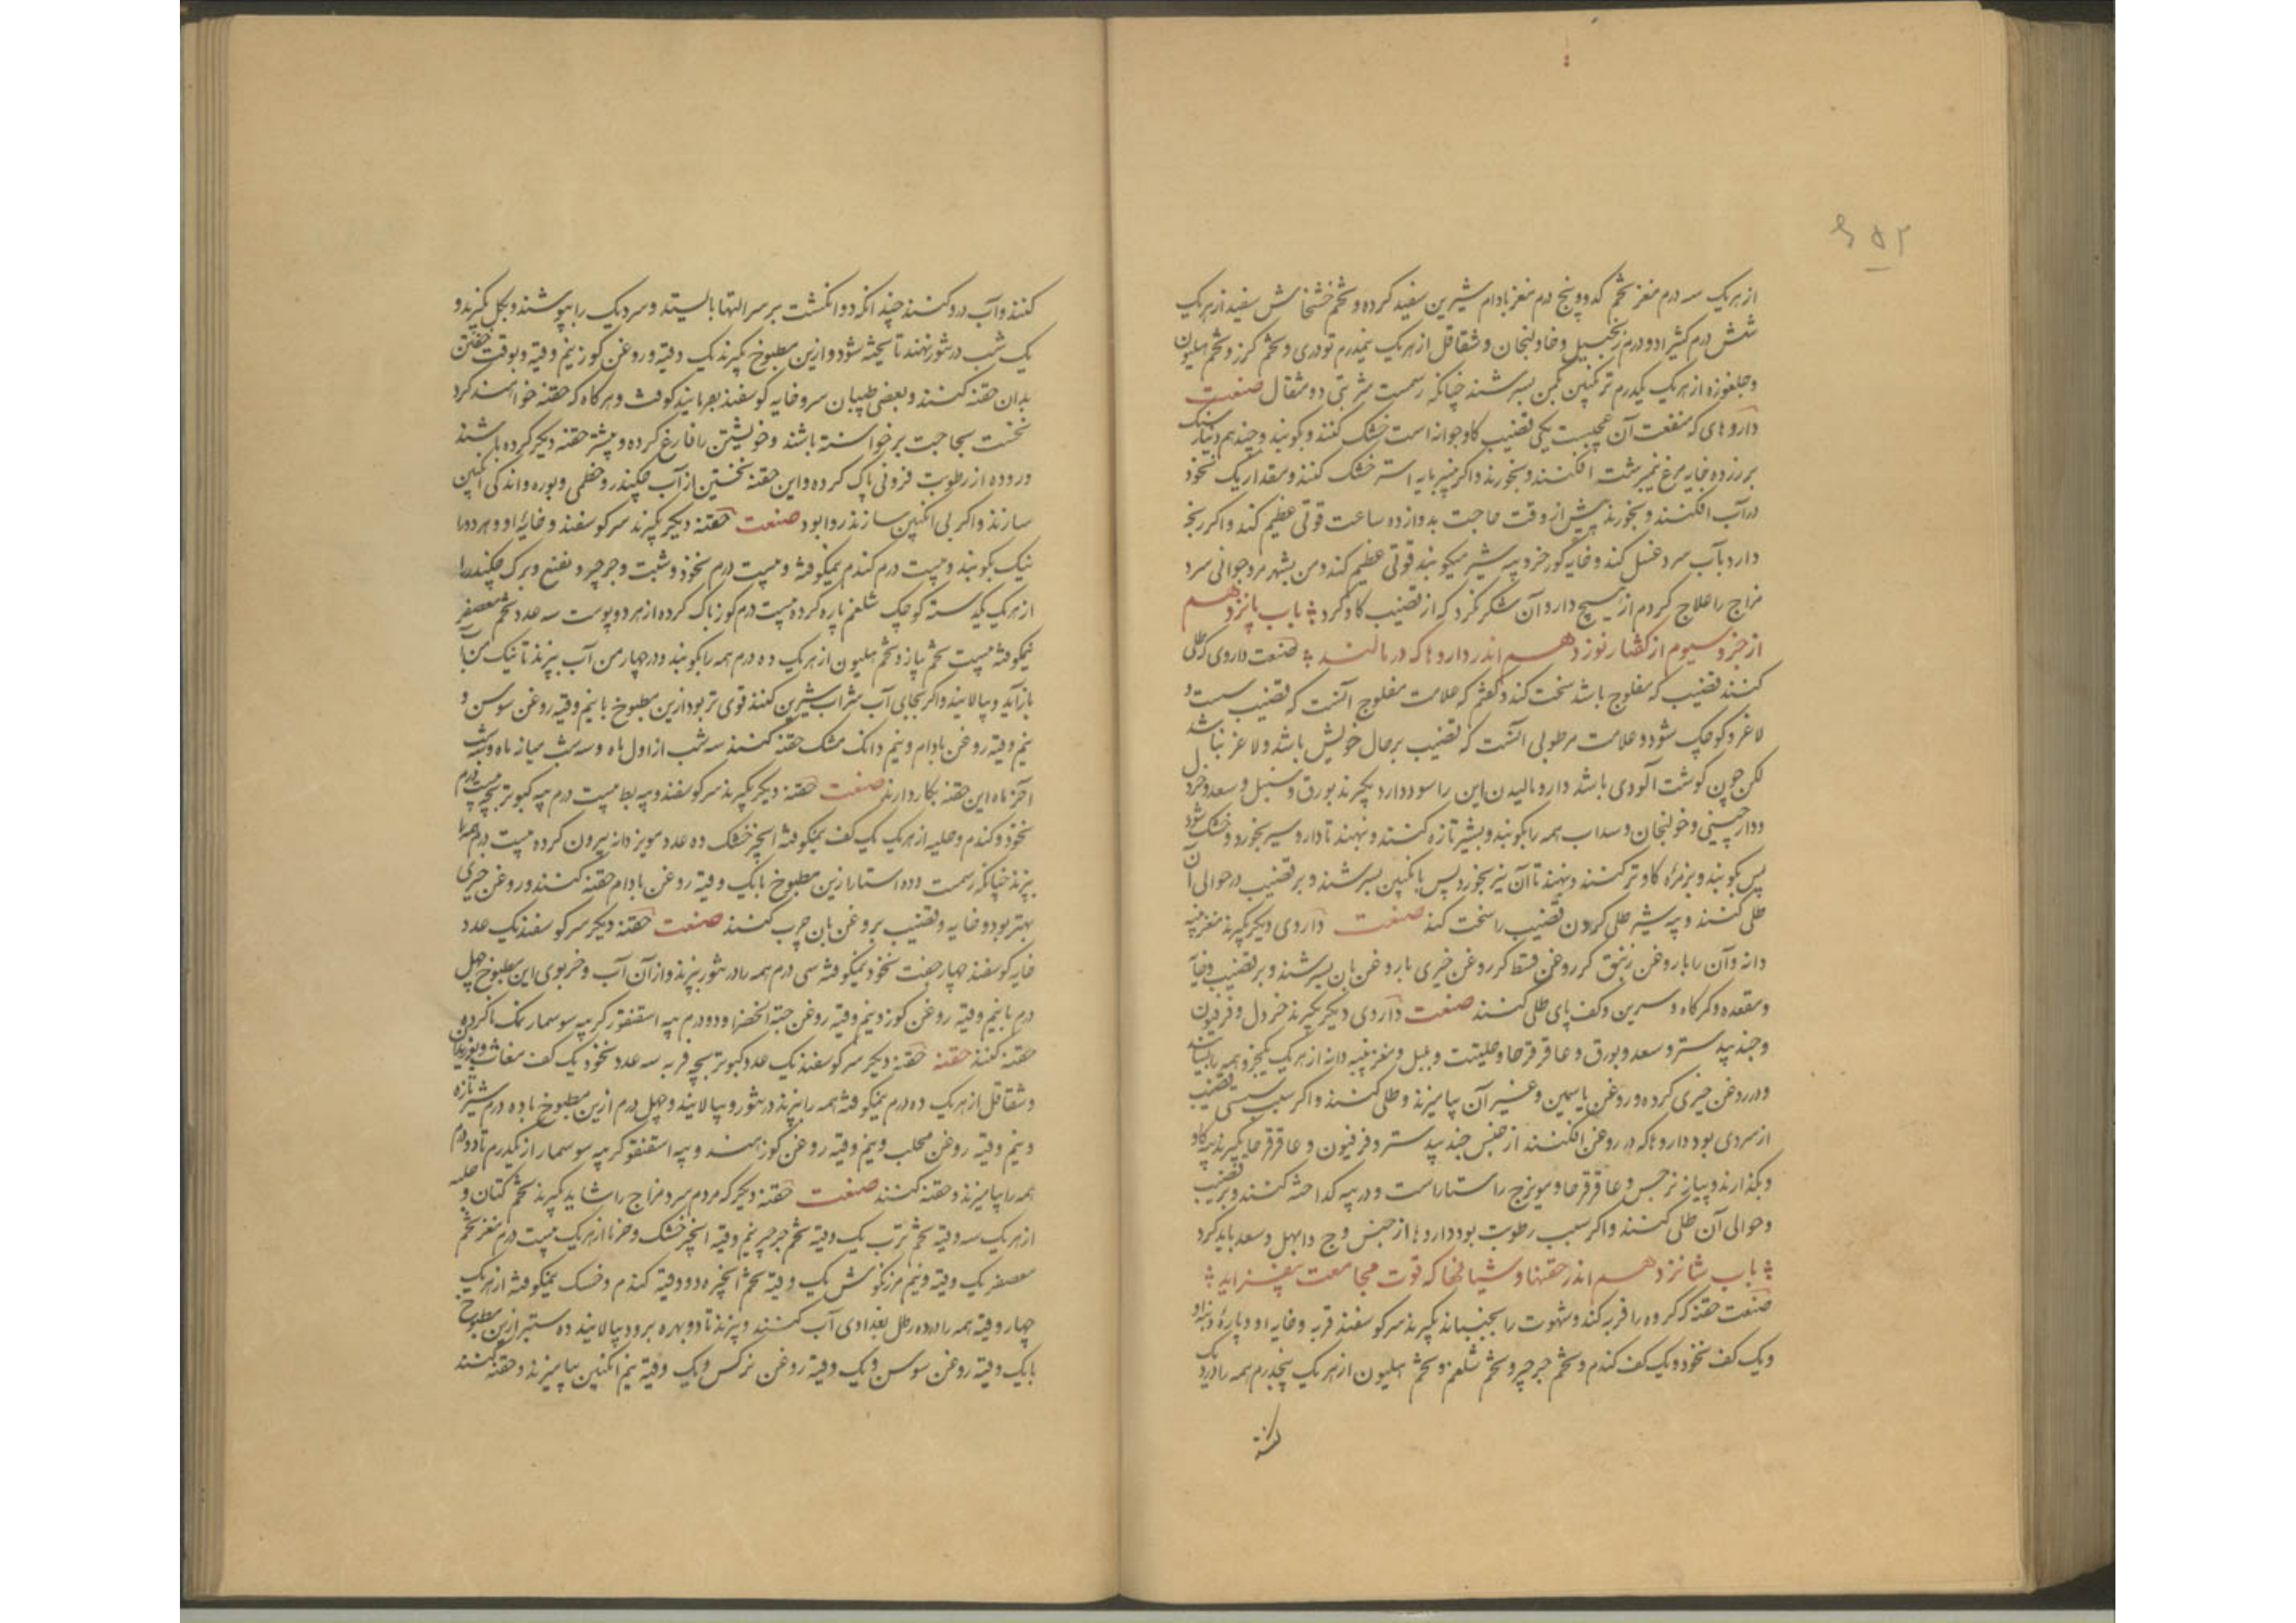 ۶۵۲
از هریک سه درم مغز تخم کدو و پنج درم مغز بادام شیرین سفید کرده و تخم خشخاش سفید از هریک
شش درم کثیرا دو درم زنجبیل و خاولنجان و شقاقل از هریک نیمدرم تودری و تخم کزر و تخم هلیون
و جلغوزه از هریک یکدرم ترنکبین بکین بسرشند چنانکه رسمست شربتی دو مثقال صنعت
داروهای که منفعت آن عجیبست یکی قضیب کاو جوانه است خشک کنند و بکوبند و چند هم دینار سنک
بر زرده خایه مرغ نیم برشت افکنند و بخورند و اکر پنیر مایه اشتر خشک کنند و مقدار یک نخود
در آب افکنند و بخورند پیش از وقت حاجت بدوازده ساعت قوتی عظیم کند و اکر رنجه
دارد بآب سرد غسل کند و خایه کورخر و پیه شیر میکوبند قوتی عظیم کند و من بشهر مرو جوانی سرد
مزاج را علاج کردم از هیچ دارو آن شکر نکرد که از قضیب کاو کرد باب پانزدهم
از جزو سیوم از کفتار نوزدهم اندر داروها که در مالند صنعت داروی که طلی
کنند قضیب که مفلوج باشد سخت کند و کفتم که علامت مفلوج آنست که قضیب سست و
لاغر و کوچک شود و علامت مرطوبی آنست که قضیب بر حال خویش باشد و لاغر نباشد
لکن چون کوشت آلودی باشد دارو مالیدن این را سود دارد بکیرند بورق و سنبل و سعد و خردل
و دارچینی و خولنجان و سداب همه را بکوبند و بشیر تازه کنند و بنهند تا دارو شیر بخورد و خشک شود
پس بکوبند و بزهره کاو تر کنند و بنهند تا آن نیز بخورد پس بانکبین بسرشند و بر قضیب و حوالی آن
طلی کنند و پیه شیر طلی کردن قضیب را سخت کند صنعت داروی دیکر بکیرند مغز پنبه
دانه و آن را با روغن زنبق کر روغن قسط کر روغن خیری با روغن بان بسرشند و بر قضیب و خایه
و مقعده و کمرکاه و سرین و کف پای طلی کنند صنعت داروی دیکر بکیرند خردل و فرفیون
و جند بیدستر و سعد و بورق و عاقرقرحا و حلتیت و بلبل و مغز پنبه دانه از هریک یکجزو همه را بسایند
و در روغن خیری کرده و روغن یاسمین و غیر آن بیامیزند و طلی کنند و اکر سبب سستی قضیب
از سردی بود داروها که در روغن افکنند از جنس جند بیدستر و فرفیون و عاقرقرحا بکیرند پیه کاو
و بکذارند و پیاز نرجس و عاقرقرحا و میویزج راستاراست و در پیه کداخته کنند و بر قضیب
و حوالی آن طلی کنند و اکر سبب رطوبت بود داروها از جنس وج و ابهل و سعد باید کرد
باب شانزدهم اندر حقنها و شیافها که قوت مجامعت بیفزاید
صنعت حقنه که کرده را فربه کند و شهوت را بجنباند بکیرند سر کوسفند فربه و خایه او و پارهٔ دنبه او
و یک کف نخود و یک کف کندم و تخم جرجیر و تخم شلغم و تخم هلیون از هریک پنجدرم همه را در دیک
کنند و آب در و کنند چندانکه دو انکشت بر سر التها بایستد و سر دیک را بپوشند و بکل بکیرند و
یک شب در تنور نهند تا پخته شود و ازین مطبوخ بکیرند یک وقیه و روغن کوز نیم وقیه و بوقت خفتن
بدان حقنه کنند و بعضی طبیبان سر و خایه کوسفند بفرمایند کوفت و هرکاه که حقنه خواهند کرد
نخست بحاجت برخواسته باشند و خویشتن را فارغ کرده و پیشتر حقنه دیکر کرده باشند
و روده از رطوبت فزونی پاک کرده و این حقنه نخستین از آب چکندر و خطمی و بوره و اندکی انکبین
سازند و اکر بی انکبین سازند روا بود صنعت حقنه دیکر بکیرند سر کوسفند و خایهٔ او و هر دو را
نیک بکوبند و بیست درم کندم نیمکوفته و بیست درم نخود و شبت و جرجیر و نعنع و برک چکندر
از هریک یکدسته کوچک شلغم پاره کرده بیست درم کوز پاک کرده از هر دو پوست سه عدد تخم معصفر
نیمکوفته بیست تخم پیاز و تخم هلیون از هریک ده درم همه را بکوبند و در چهار من آب بپزند تا نیک من
باز آید و بپالایند و اکر بجای آب شراب شیرین کنند قوی تر بود ازین مطبوخ با نیم وقیه روغن سوسن و
نیم وقیه روغن بادام و نیم دانک مشک حقنه کنند سه شب از اول ماه و سه شب میانه ماه و سه شب
آخر ماه این حقنه بکار دارند صنعت حقنه دیکر بکیرند سر کوسفند و پیه بط بیست درم پیه کبوتر بچه بیست درم
نخود و کندم و حلبه از هریک یک کف نیمکوفته انجیر خشک ده عدد مویز دانه بیرون کرده بیست درم همه را
بپزند چنانکه رسمست و ده استار ازین مطبوخ با یک وقیه روغن بادام حقنه کنند و روغن خیری
بهتر بود و خایه و قضیب بروغن بان چرب کنند صنعت حقنه دیکر سر کوسفند یک عدد
خایه کوسفند چهار جفت نخود نیمکوفته سی درم همه را در تنور بپزند و از آن آب و چربوی این مطبوخ چهل
درم با نیم وقیه روغن کوز و نیم وقیه روغن حبة الخضرا و دو درم پیه اسقنقور کر پیه سوسمار نمک ناکرده
حقنه کنند حقنه حقنه دیکر سر کوسفند یک عدد کبوتر بچه فربه سه عدد نخود یک کف مغاث و بوزیدان
و شقاقل از هریک ده درم نیمکوفته همه را بپزند در تنور و بپالایند و چهل درم ازین مطبوخ با ده درم شیر تازه
و نیم وقیه روغن محلب و نیم وقیه روغن کوز هند و پیه اسقنقور کر پیه سوسمار از یکدرم تا دو درم
همه را بیامیزند و حقنه کنند صنعت حقنه دیکر که مردم سرد مزاج را شاید بکیرند تخم کتان و حلبه
از هریک سه وقیه تخم ترب یک وقیه تخم جرجیر نیم وقیه انجیر خشک و خرما از هریک بیست درم مغز تخم
معصفر یک وقیه و نیم مرزنکوش یک وقیه تخم انجره دو وقیه کندم و خسک نیمکوفته از هریک
چهار وقیه همه را در ده رطل بغدادی آب کنند و بپزند تا دو بهره برود و بپالایند ده ستیر ازین مطبوخ
با یک وقیه روغن سوسن و یک وقیه روغن نرکس و یک وقیه نیم انکبین بیامیزند و حقنه کنند